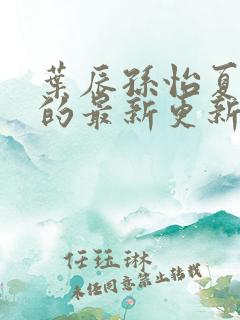 葉辰孫怡夏
的最新更新
任珏琳
未经同意禁止转载